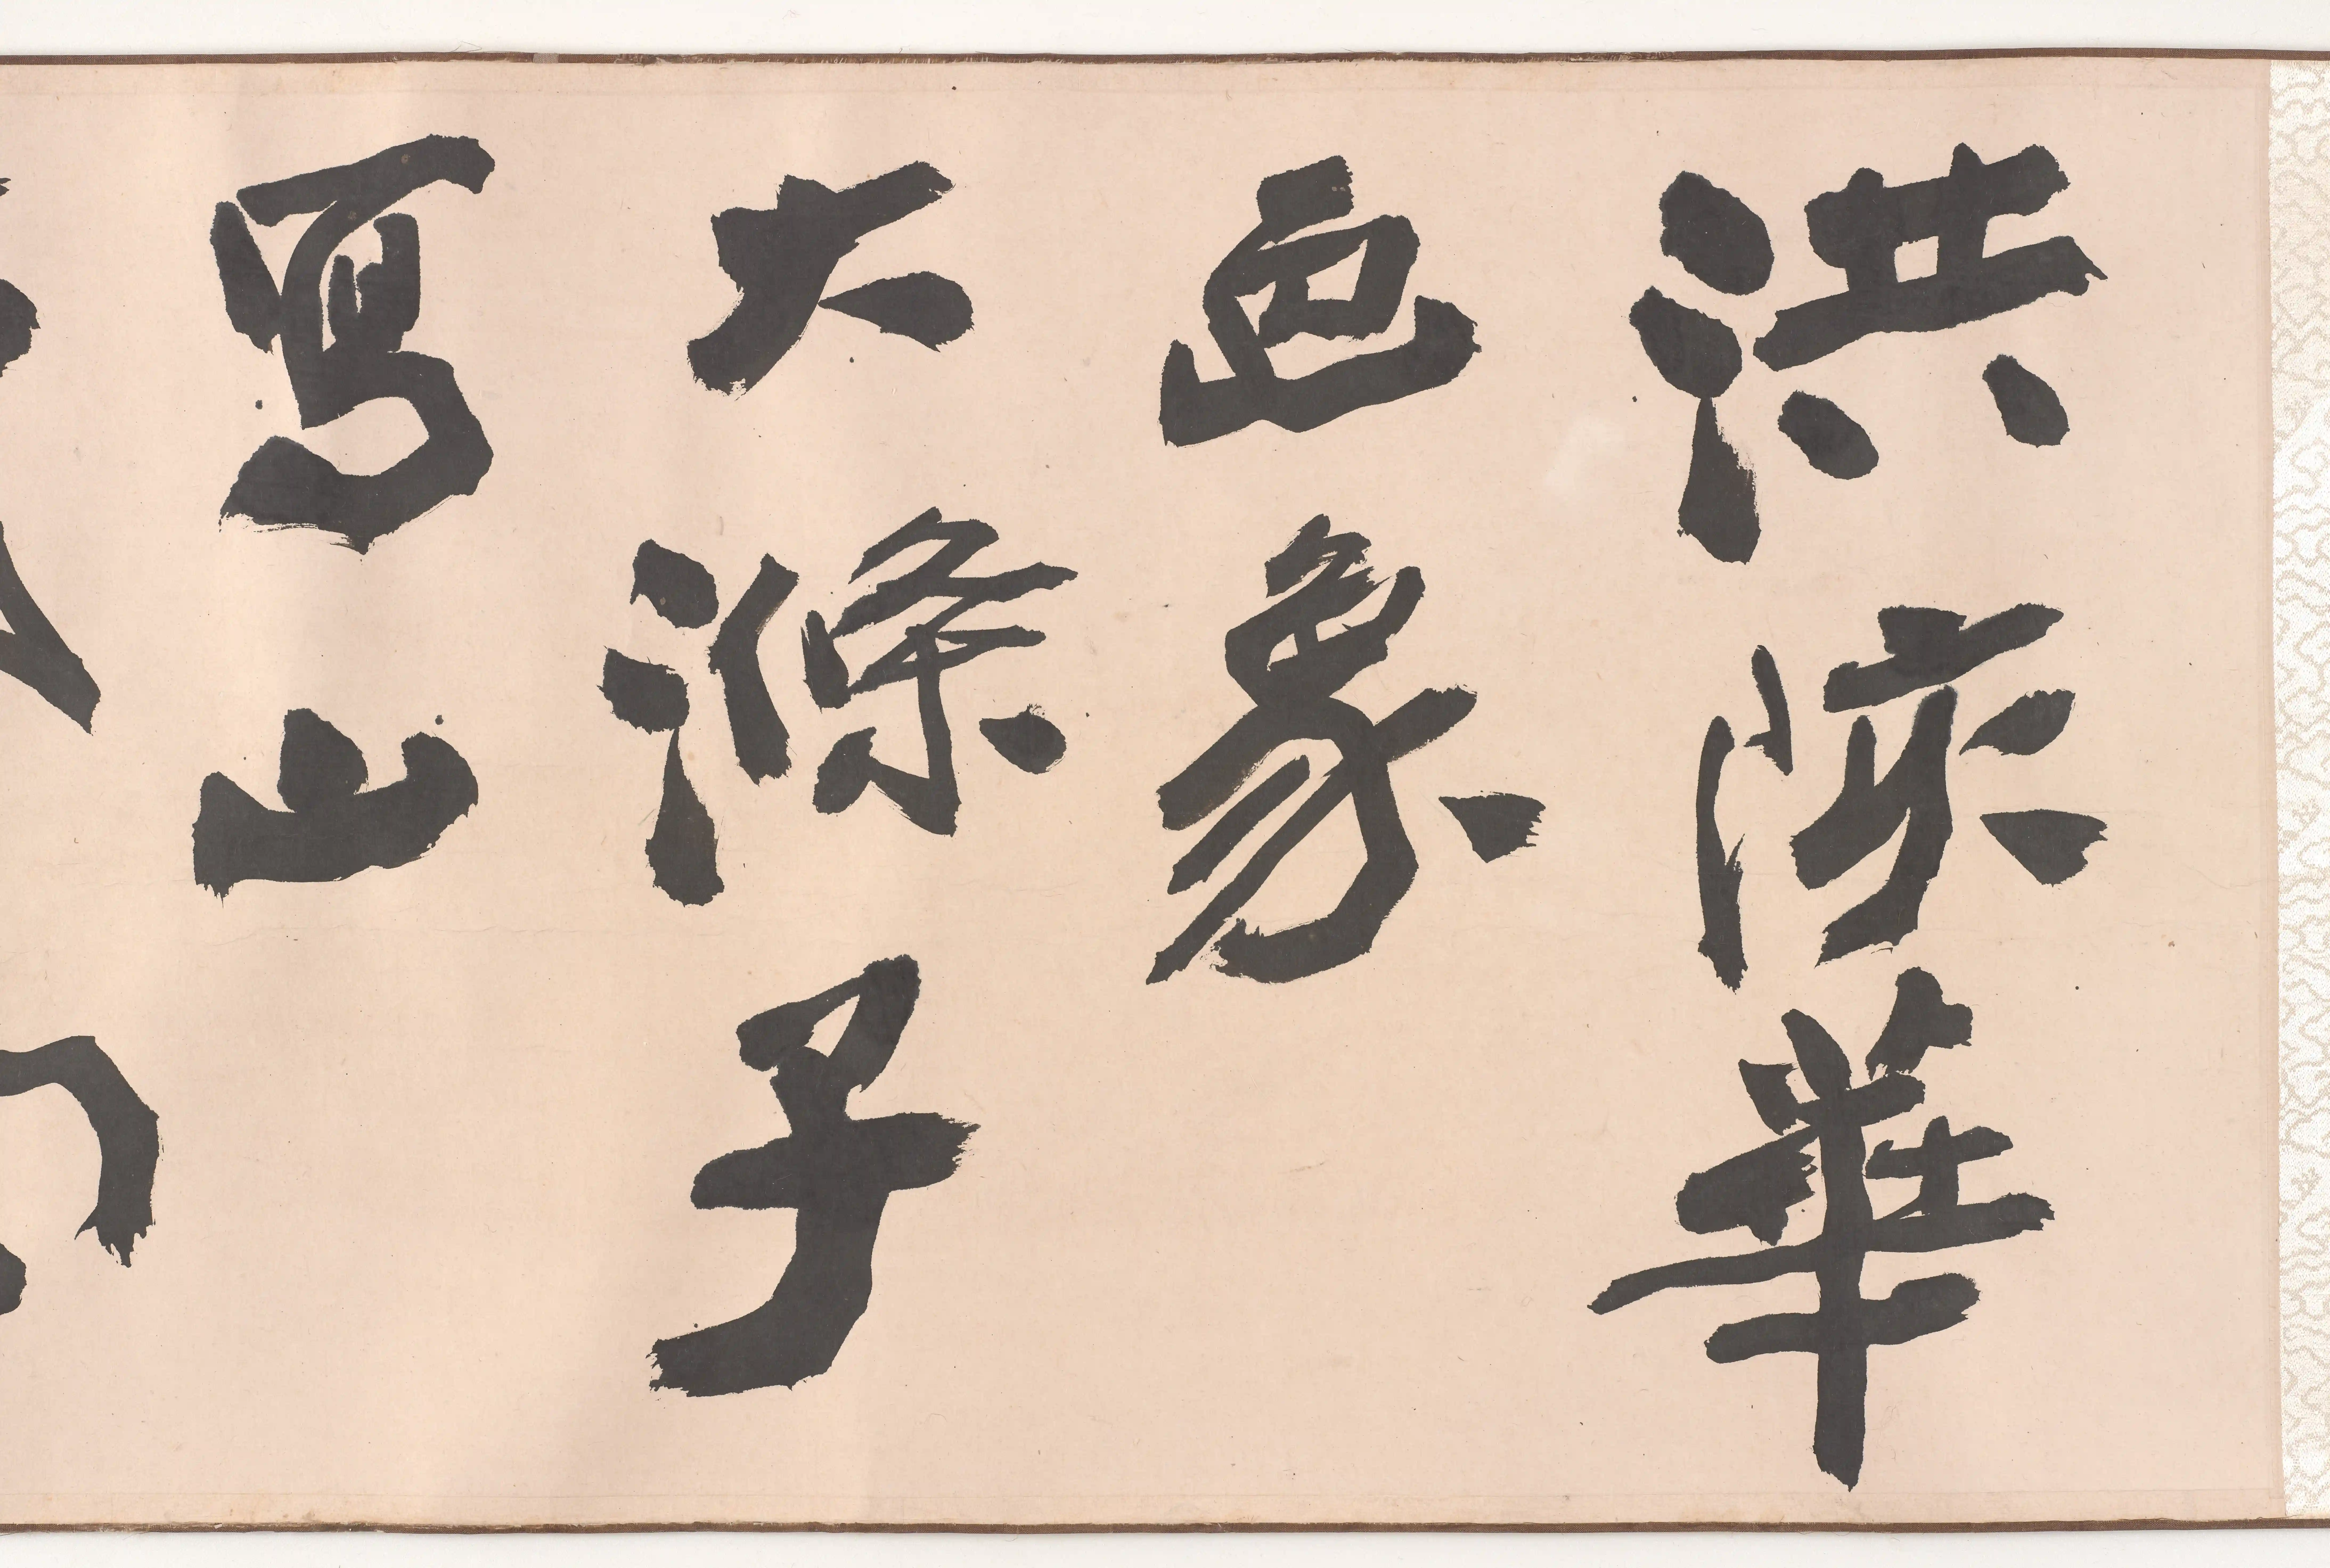 洪陔華
画象
大滌子
寫山